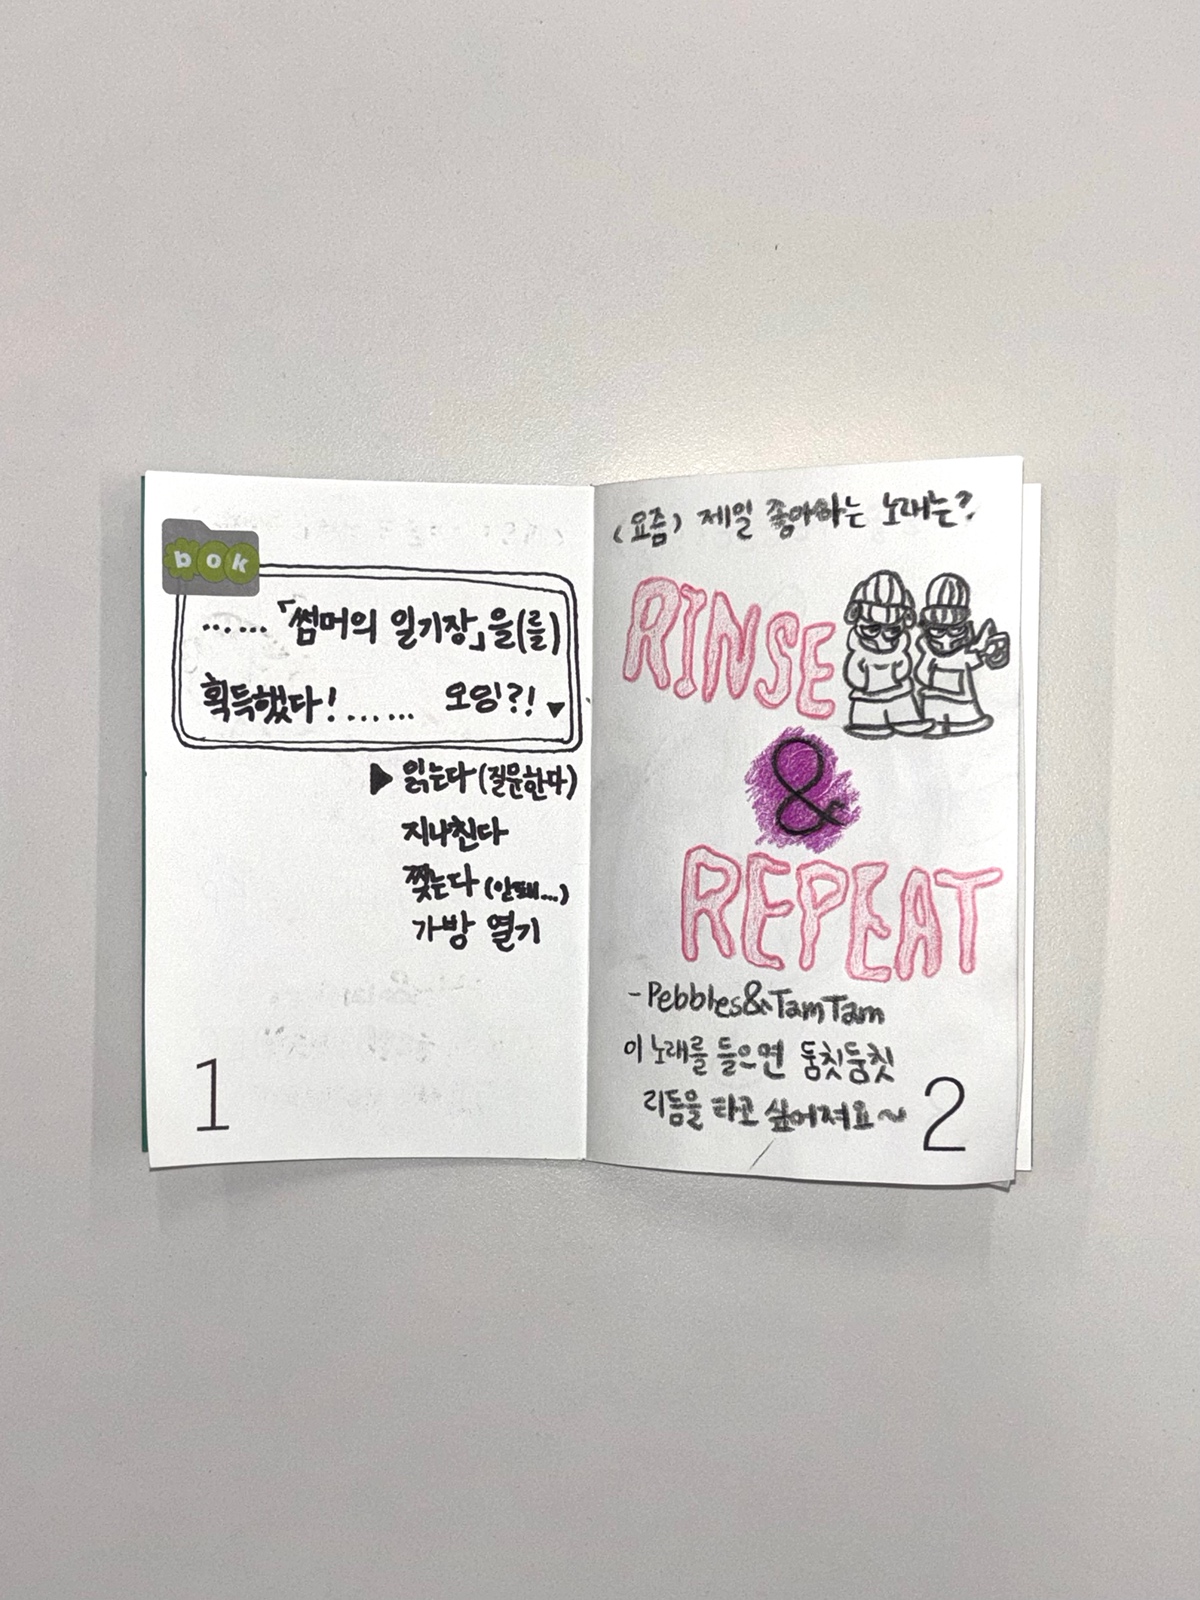 bok
...... 「썸머의 일기장」을(를)
획득했다! ...... 오잉?! ▼
▶ 읽는다 (질문한다)
지나친다
찢는다 (안돼...)
가방 열기
1
(요즘) 제일 좋아하는 노래는?
RINSE
&
REPEAT
- Pebbles&TamTam
이 노래를 들으면 둠칫둠칫
리듬을 타고 싶어져요~
2